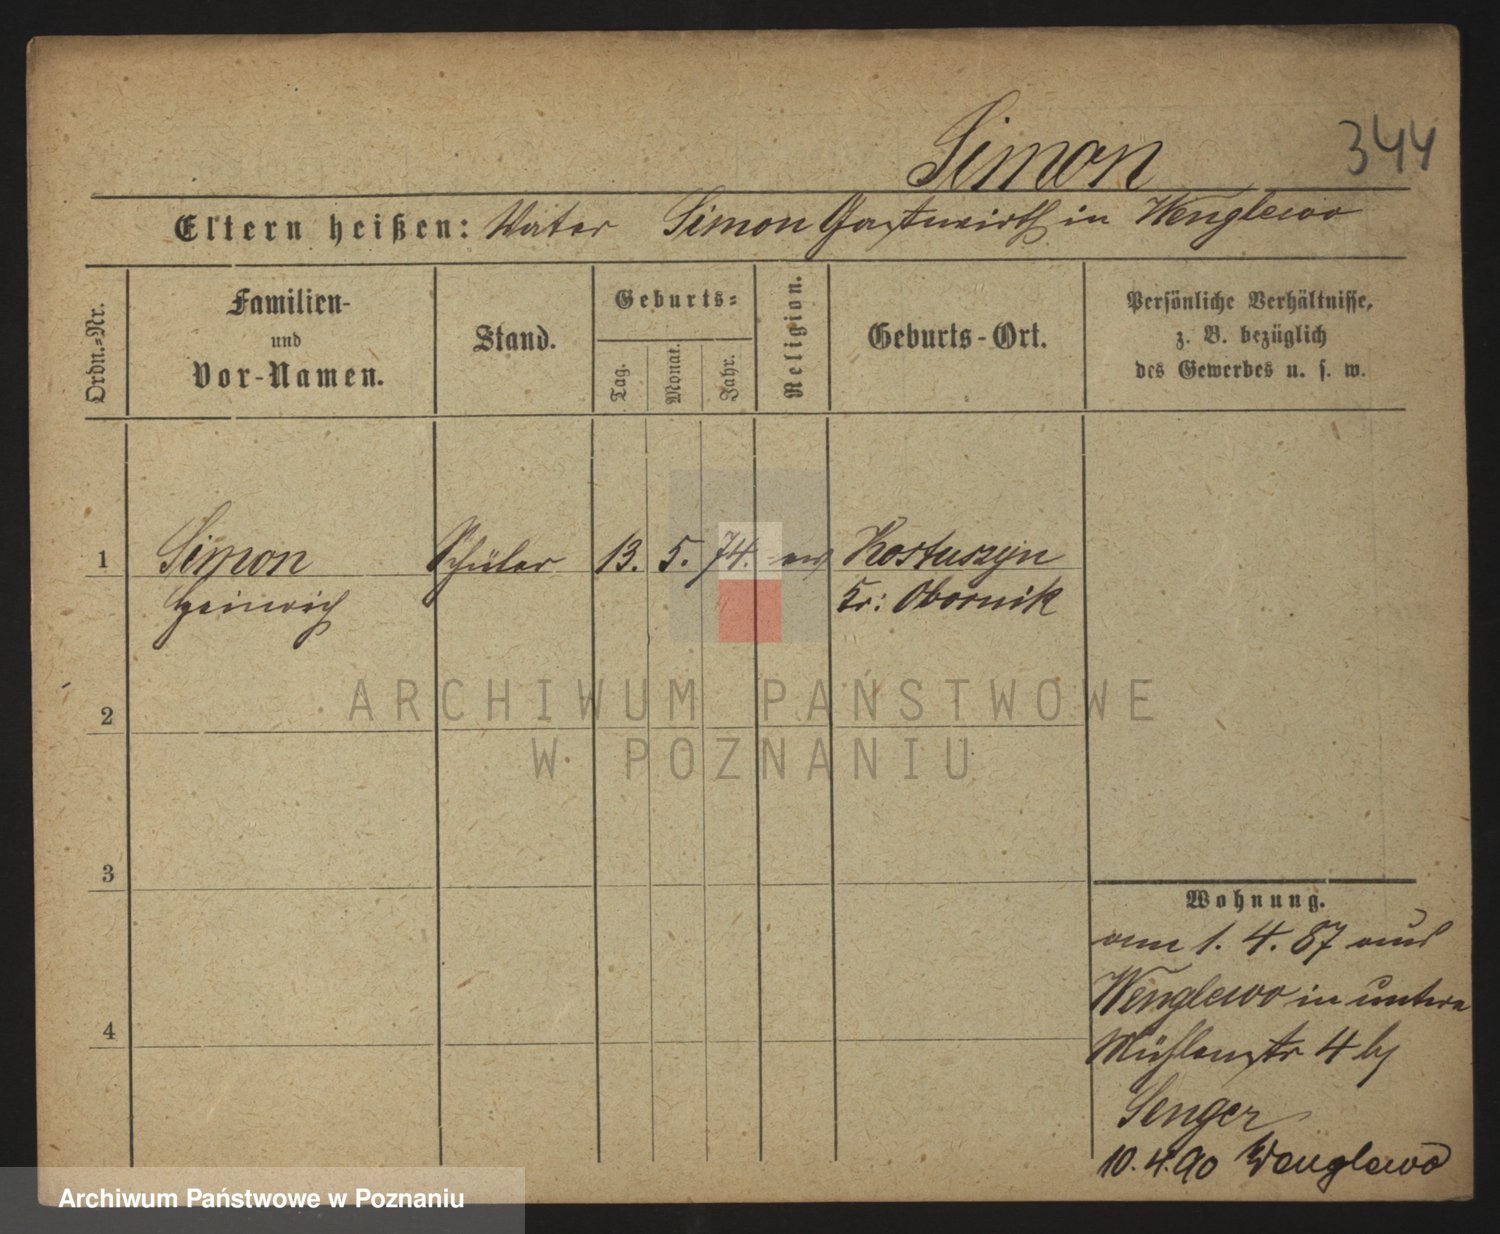 Simon 344
Eltern heißen: Vater Simon Gastwirth in Wenglewo
Ordn.-Nr.
Familien-
und
Vor-Namen.
Stand.
Geburts-
Tag.
Monat.
Jahr.
Religion.
Geburts-Ort.
Persönliche Verhältnisse,
z. B. bezüglich
des Gewerbes u. s. w.
1 Simon Schüler 13. 5. 74. ev Kostuszyn
Heinrich Kr: Obornik
2
3
4
Wohnung.
am 1. 4. 87 aus
Wenglewo in untere
Mühlenstr 4 b/
Senger
10. 4. 90 Wenglewo
ARCHIWUM PAŃSTWOWE
W POZNANIU
Archiwum Państwowe w Poznaniu